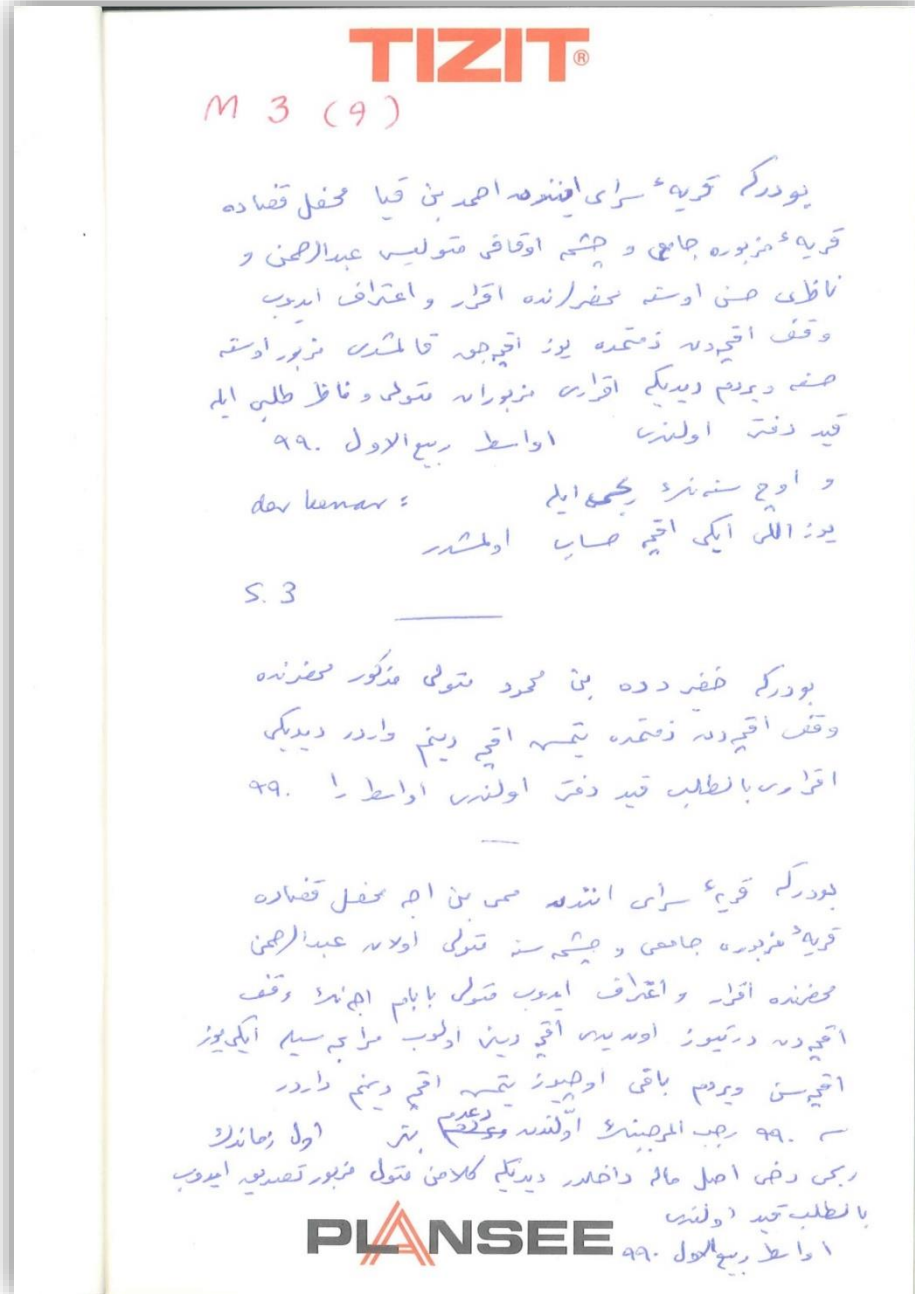 TIZIT®
M 3 (9)
بودركه قريهٔ سراى احمد بن قيا محفل قضاده
قريهٔ مزبوره جامعى و چشمه اوقافى متوليسى عبدالرحمن و
ناظرى حسن اوسته محضرلرنده اقرار و اعتراف ايدوب
وقف اقچه‌دن ذمتمده يوز اقچه‌جق قالمشدى مزبور اوسته
حسنه ويردم ديديكى اقرارى مزبوران متولى و ناظر طلبى ايله
قيد دفتر اولندى اواسط ربيع الاول ٩٩٠
و اوچ سنه‌نك ربحى ايله der kenar :
يوز اللى ايكى اقچه حساب اولمشدر
S. 3
بودركه خضر دده بن محمود متولى مذكور محضرنده
وقف اقچه‌دن ذمتمده يتمش اقچه دينم واردر ديديكى
اقرارى بالطلب قيد دفتر اولندى اواسط را ٩٩٠
بودركه قريهٔ سراى بن محفل قضاده
قريهٔ مزبوره جامعى و چشمه‌سنه متولى اولان عبدالرحمن
محضرنده اقرار و اعتراف ايدوب متولى بابام وقف
اقچه‌دن درتيوز اون يدى اقچه دينى اولوب مرابحه‌سيله ايكى يوز
اقچه‌سن ويردم باقى اوچيوز يتمش اقچه دينم واردر
٩٩٠ رجب المرجبنك اولندن وعدم بتر اول زماندك
ربحى دخى اصل ماله داخلدر ديديكى كلامن متولى مزبور تصديق ايدوب
بالطلب قيد اولندى
اواسط ربيع الاول ٩٩٠
PLANSEE